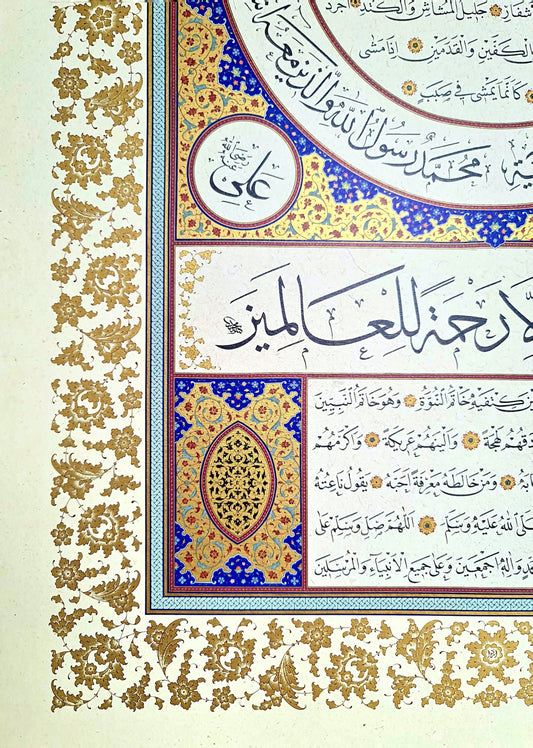 جليل المشاش والكتد ۞ اجرد
الكفين والقدمين ۞ اذا مشى
كانما يمشى فى صبب
محمد رسول الله والذين معه
على
رضى الله عنه
الا رحمة للعالمين
بين كتفيه خاتم النبوة ۞ وهو خاتم النبيين
لهجة ۞ والينهم عريكة ۞ واكرمهم
هابه ۞ ومن خالطه معرفة احبه ۞ يقول ناعته
صلى الله عليه وسلم ۞ اللهم صل وسلم على
محمد واله اجمعين وعلى جميع الانبياء والمرسلين